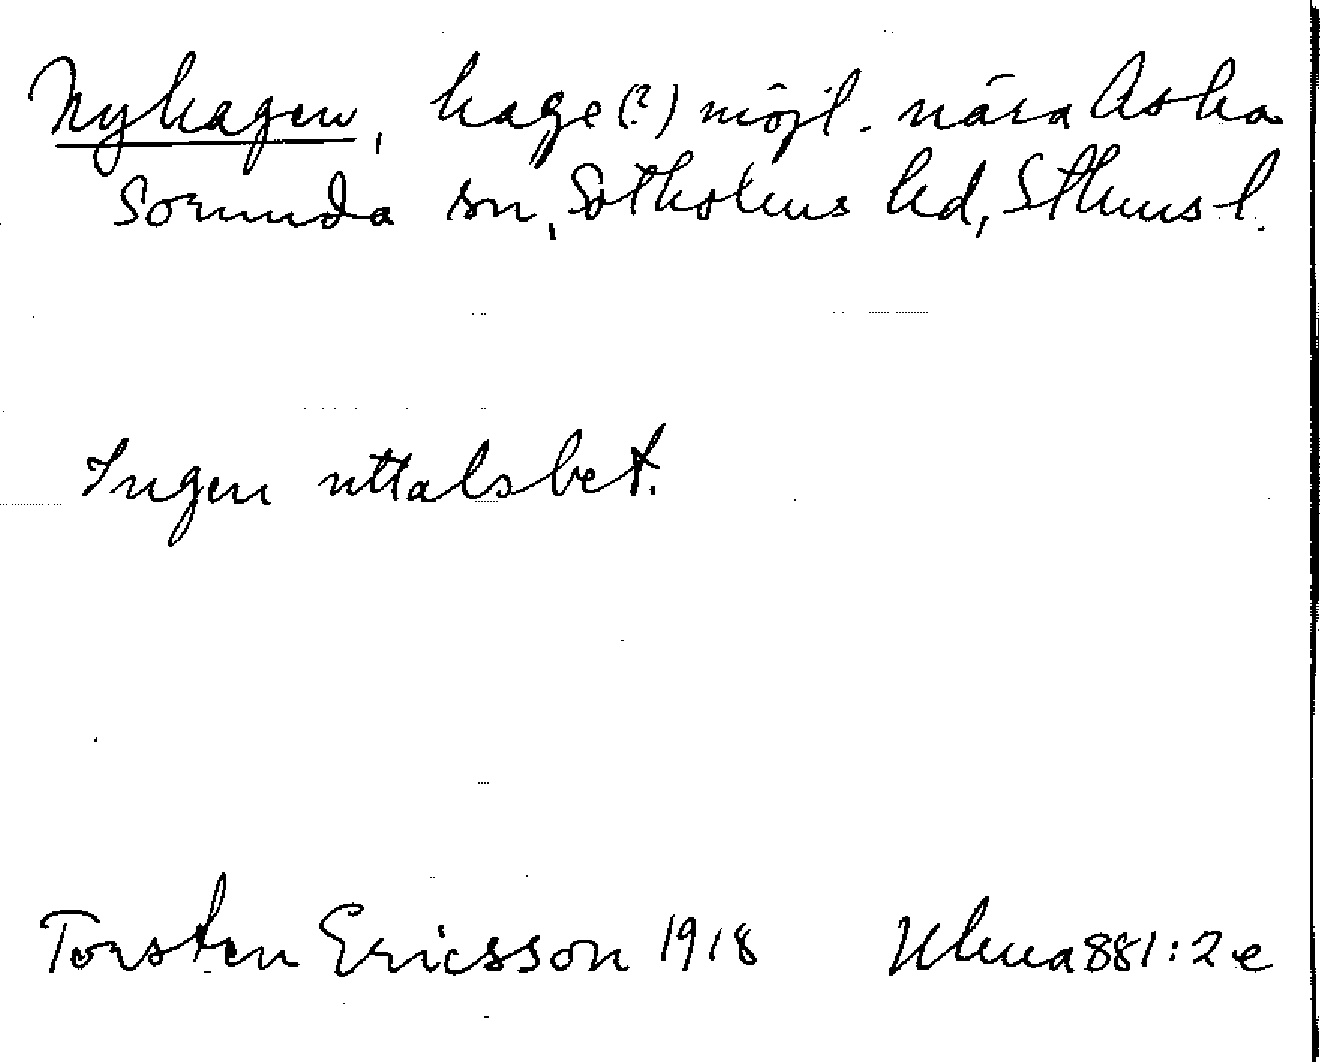 Nyhagen, hage(?) möjl. nära Aska
Sorunda sn, Sotholms hd, Sthms l.
Ingen uttalsbet.
Torsten Ericsson 1918 Ulma 881:2 e